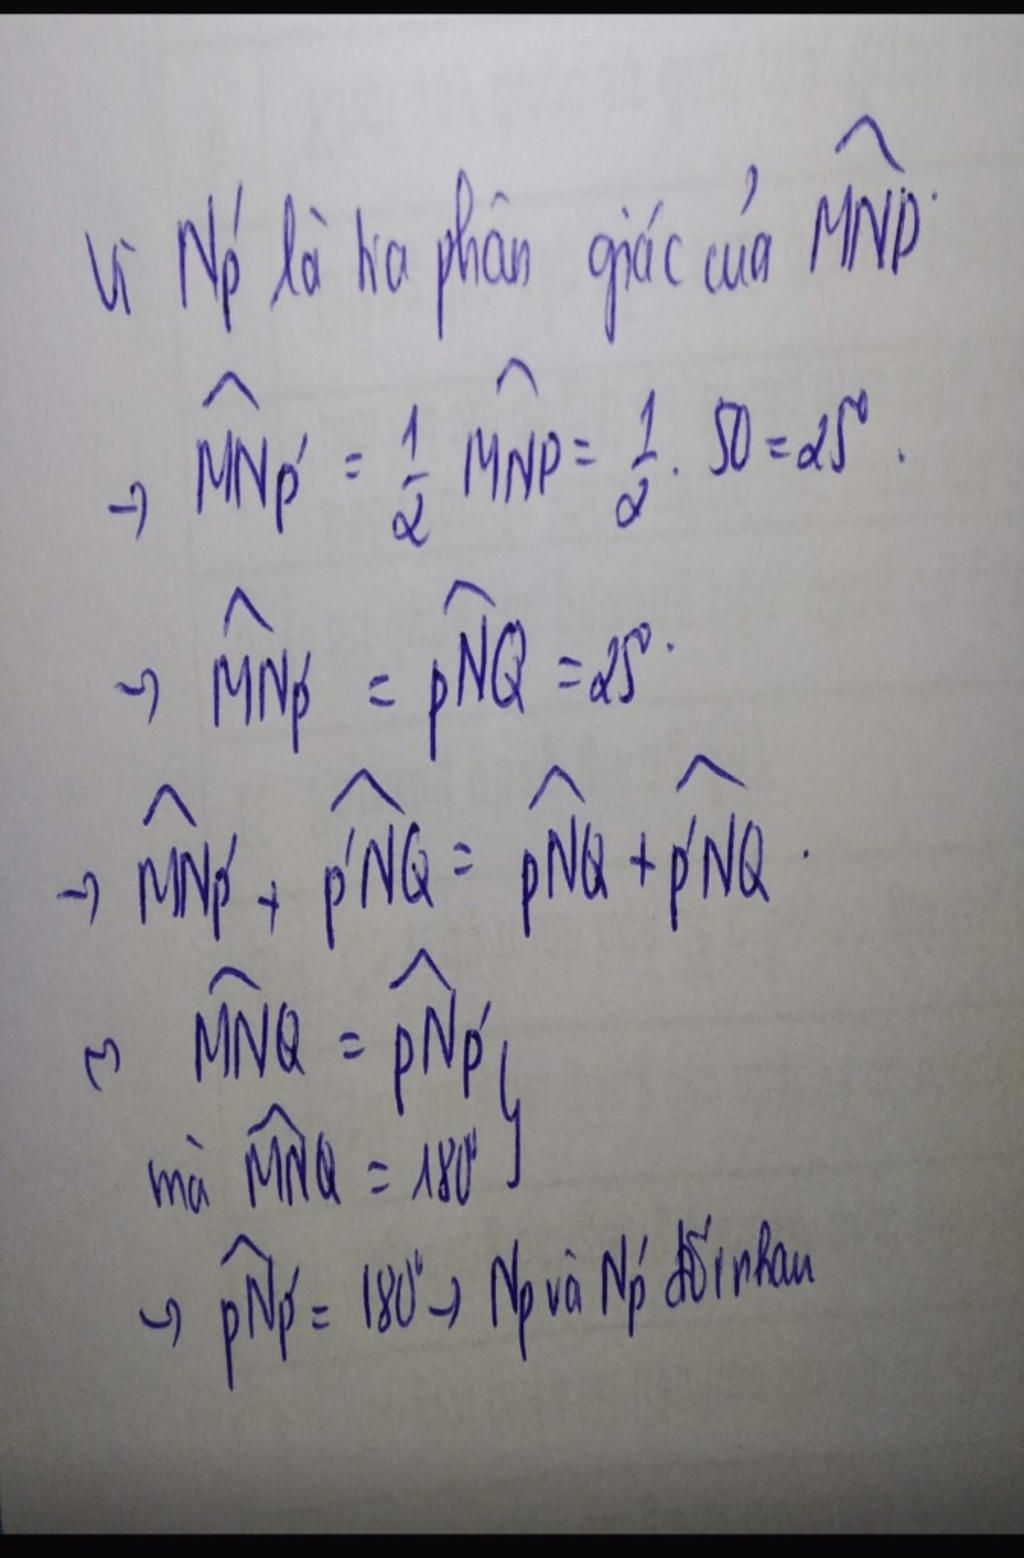 Vì Np' là tia phân giác của \widehat{MNP}.
→ \widehat{MNp'} = \frac{1}{2} \widehat{MNP} = \frac{1}{2} . 50 = 25° .
→ \widehat{MNp'} = \widehat{pNQ} = 25° .
→ \widehat{MNp'} + \widehat{p'NQ} = \widehat{pNQ} + \widehat{p'NQ} .
\widehat{MNQ} = \widehat{pNp'}
mà \widehat{MNQ} = 180°
→ \widehat{pNp'} = 180° → Np và Np' đối nhau